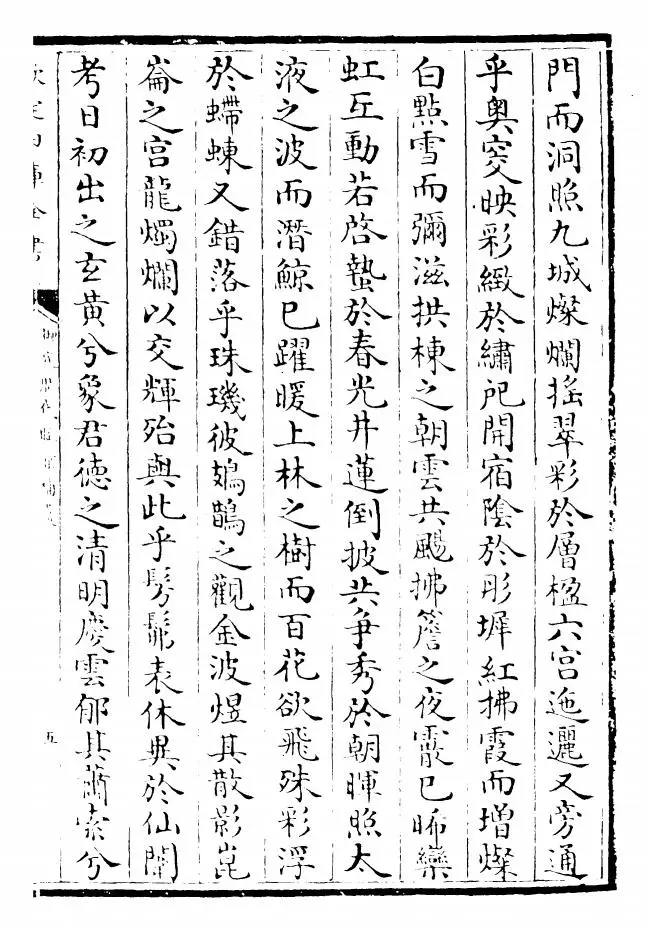 門而洞照九城燦爛搖翠彩於層楹六宮迤邐又旁通
乎奥窔映彩緻於繡戺開宿陰於彤墀紅拂霞而增燦
白點雪而彌滋拱棟之朝雲共颺拂簷之夜霰已晞欒
虹互動若啓蟄於春光井蓮倒披共爭秀於朝暉照太
液之波而潛鯨已躍暖上林之樹而百花欲飛殊彩浮
於螮蝀又錯落乎珠璣彼鳷鵲之觀金波煜其散影崑
崙之宫龍燭爛以交輝殆與此乎髣髴表休異於仙闈
考日初出之玄黄兮象君德之清明慶雲郁其蕭索兮
欽定四庫全書
五